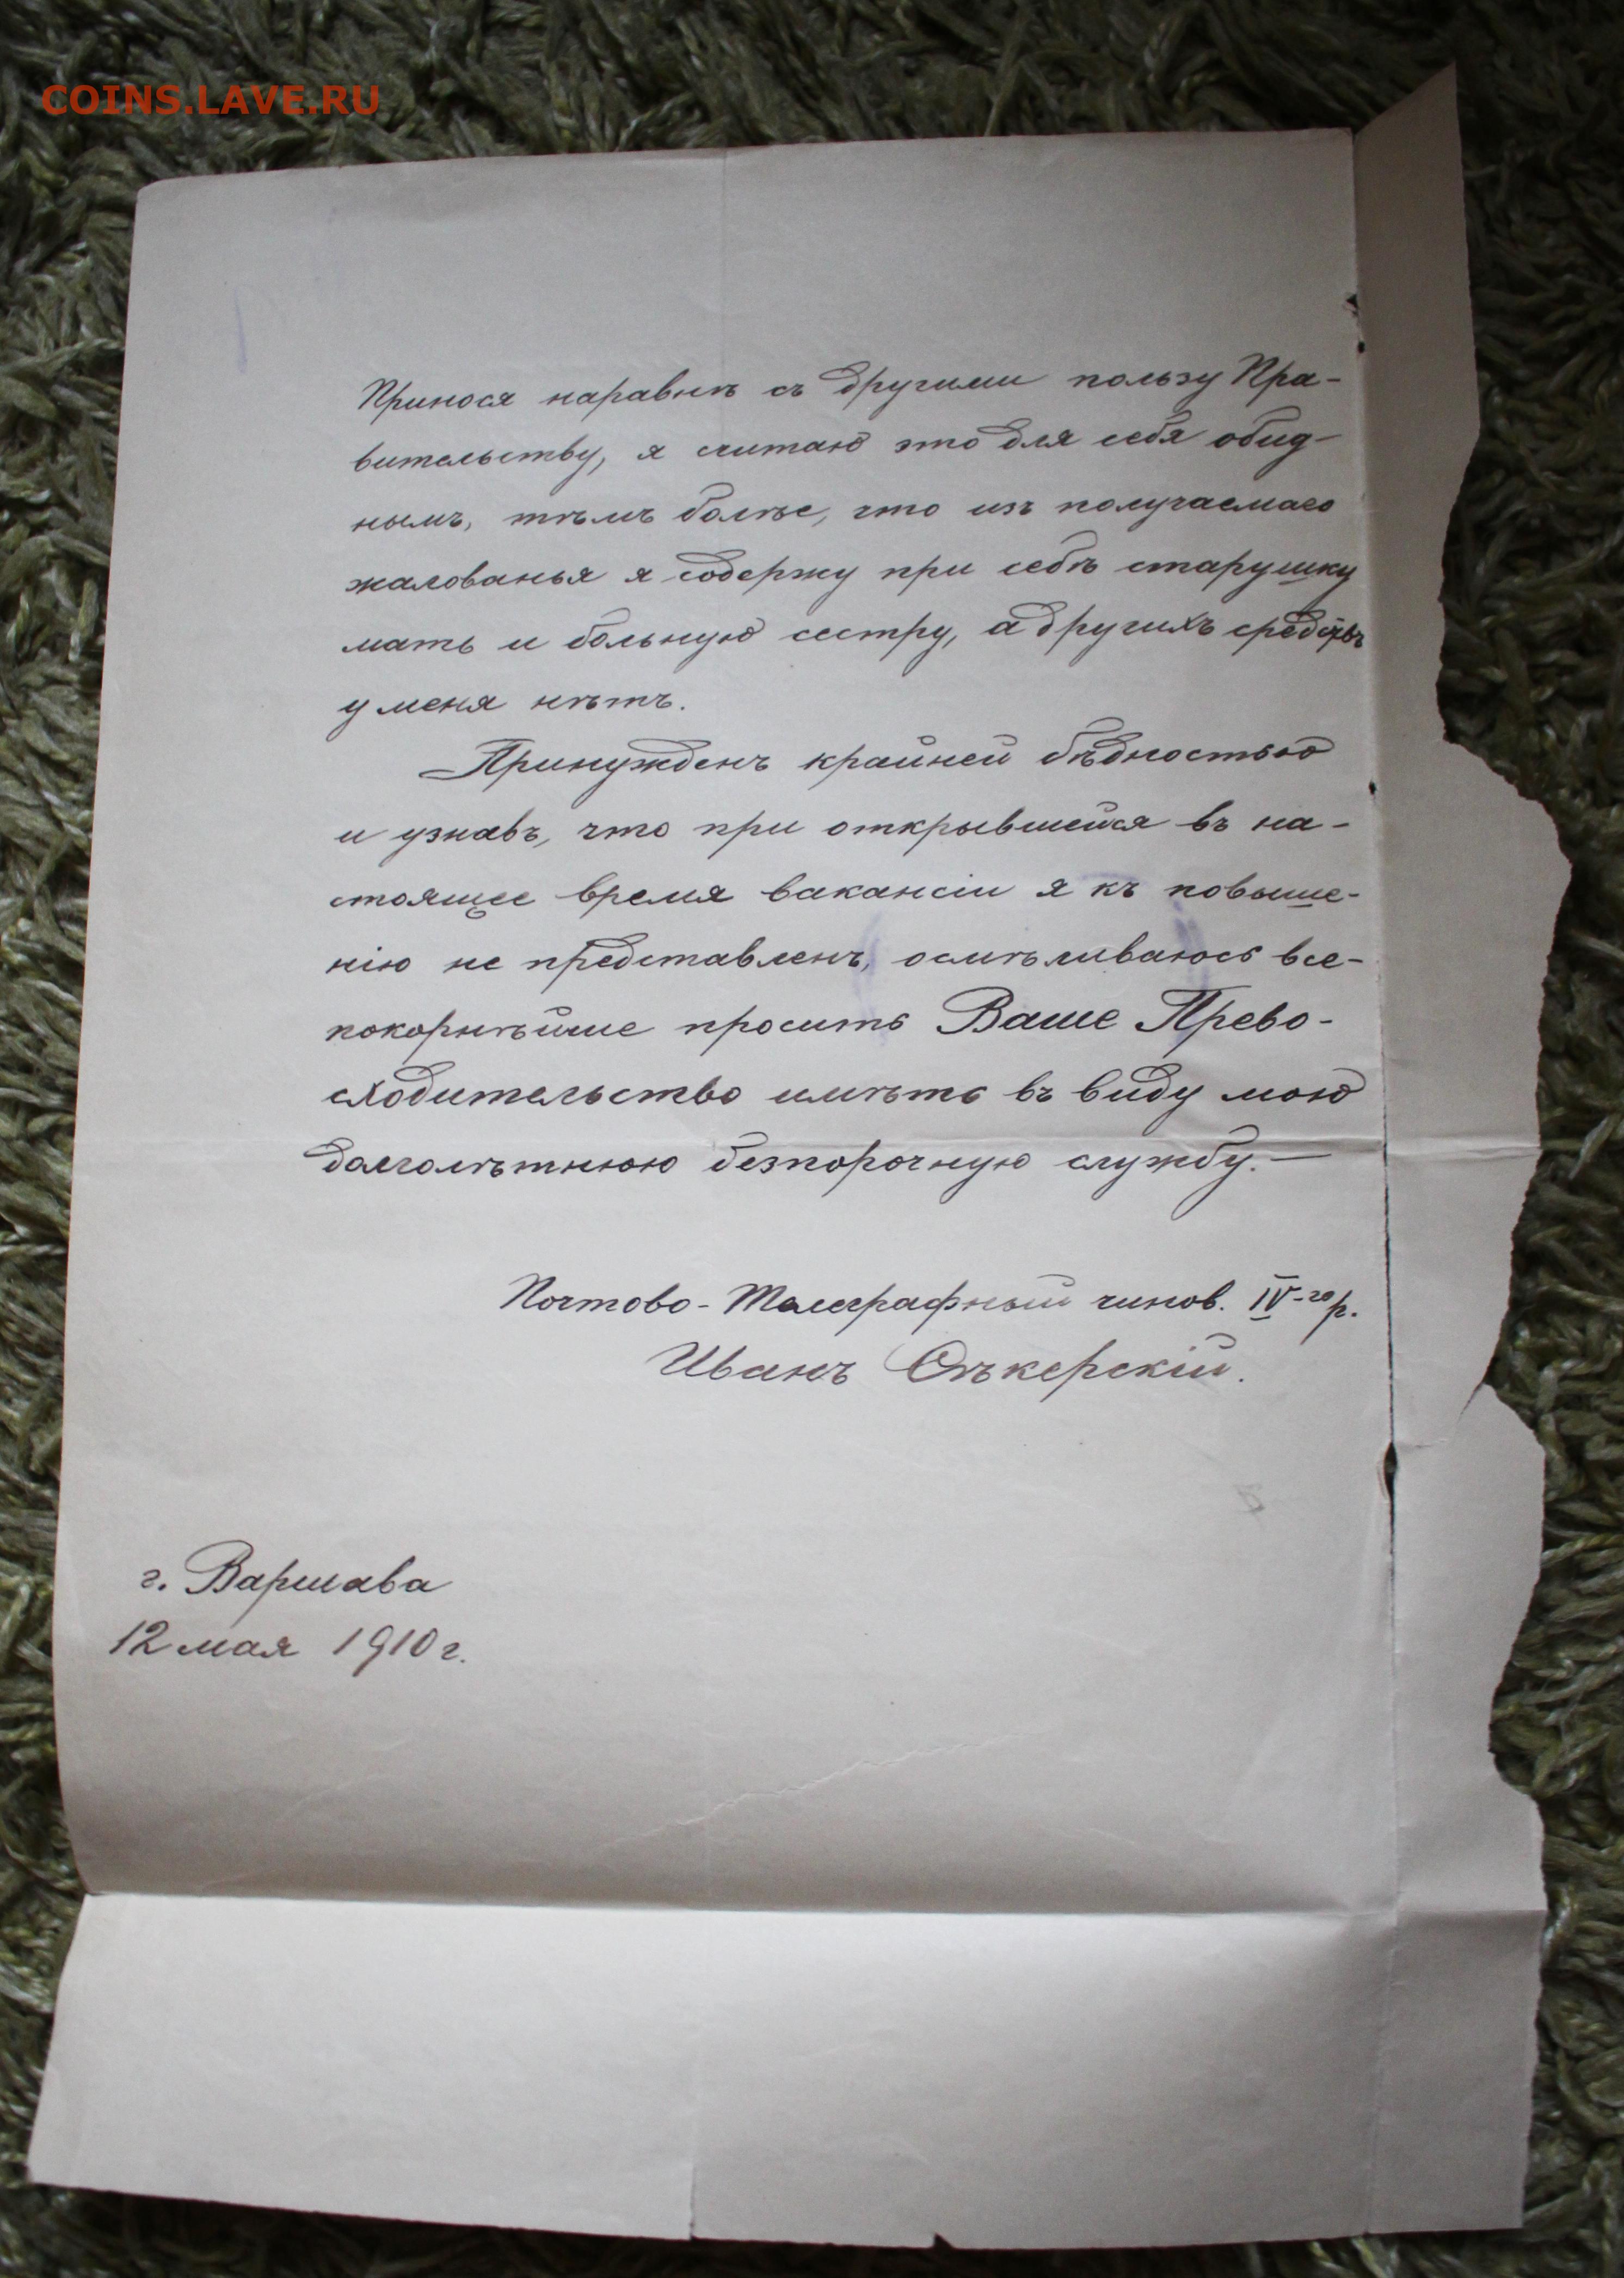 COINS.LAVE.RU
Принося наравнѣ съ другими пользу Пра-
вительству, я считаю это для себя обид-
нымъ, тѣмъ болѣе, что изъ получаемаго
жалованья я содержу при себѣ старушку
мать и больную сестру, а другихъ средствъ
у меня нѣтъ.
Принужденъ крайней бѣдностью
и узнавъ, что при открывшейся въ на-
стоящее время вакансіи я къ повыше-
нію не представленъ, осмѣливаюсь все-
покорнѣйше просить Ваше Прево-
сходительство имѣть въ виду мою
долголѣтнюю безпорочную службу.—
Почтово-Телеграфный чинов. IV-го р.
Иванъ
г. Варшава
12 мая 1910 г.